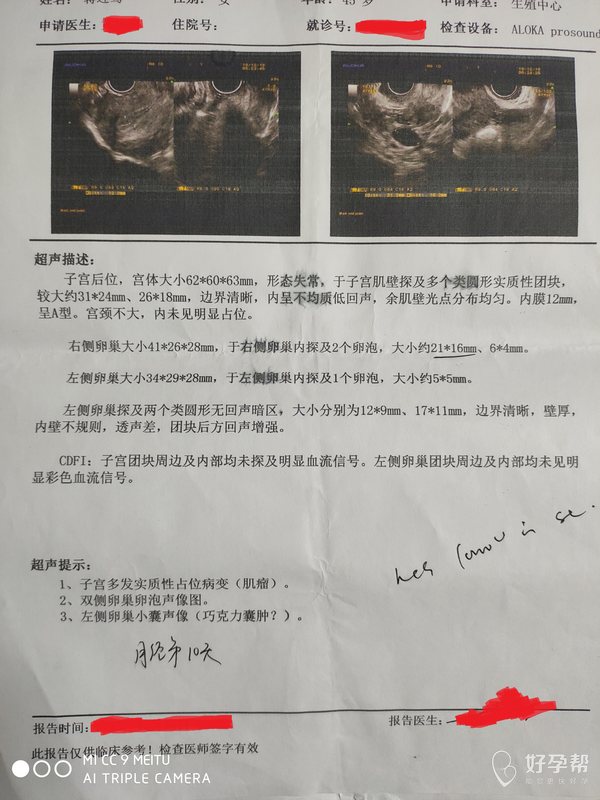 性别： 女
申请科室： 生殖中心
申请医生：
住院号：
就诊号：
检查设备： ALOKA prosound
超声描述：
子宫后位，宫体大小62*60*63mm，形态失常，于子宫肌壁探及多个类圆形实质性团块，
较大约31*24mm、26*18mm，边界清晰，内呈不均质低回声，余肌壁光点分布均匀。内膜12mm，
呈A型。宫颈不大，内未见明显占位。
右侧卵巢大小41*26*28mm，于右侧卵巢内探及2个卵泡，大小约21*16mm、6*4mm。
左侧卵巢大小34*29*28mm，于左侧卵巢内探及1个卵泡，大小约5*5mm。
左侧卵巢探及两个类圆形无回声暗区，大小分别为12*9mm、17*11mm，边界清晰，壁厚，
内壁不规则，透声差，团块后方回声增强。
CDFI：子宫团块周边及内部均未探及明显血流信号。左侧卵巢团块周边及内部均未见明
显彩色血流信号。
超声提示：
1、子宫多发实质性占位病变（肌瘤）。
2、双侧卵巢卵泡声像图。
3、左侧卵巢小囊声像（巧克力囊肿？）。
月经第10天
报告时间：
报告医生：
此报告仅供临床参考！检查医师签字有效
MI CC 9 MEITU
AI TRIPLE CAMERA
好孕帮